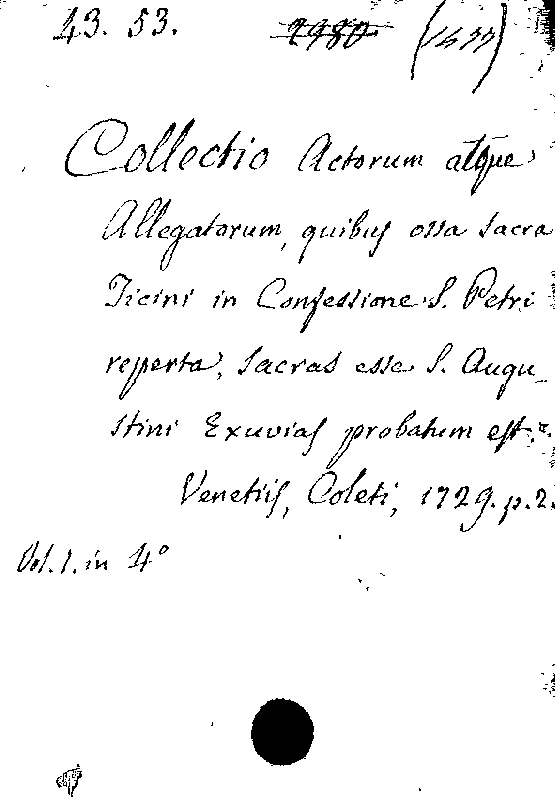 43. 53. 2980
Collectio Actorum atque
Allegatorum, quibus ossa sacra
Ticini in Confessione S. Petri
reperta, sacras esse S. Augu_
stini Exuvias probatum est.
Venetiis, Coleti, 1729. p. 2.
Vol. 1. in 4º